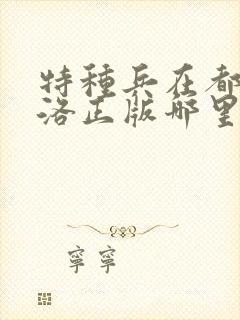 特種兵在都
洛正版哪里
寧寧